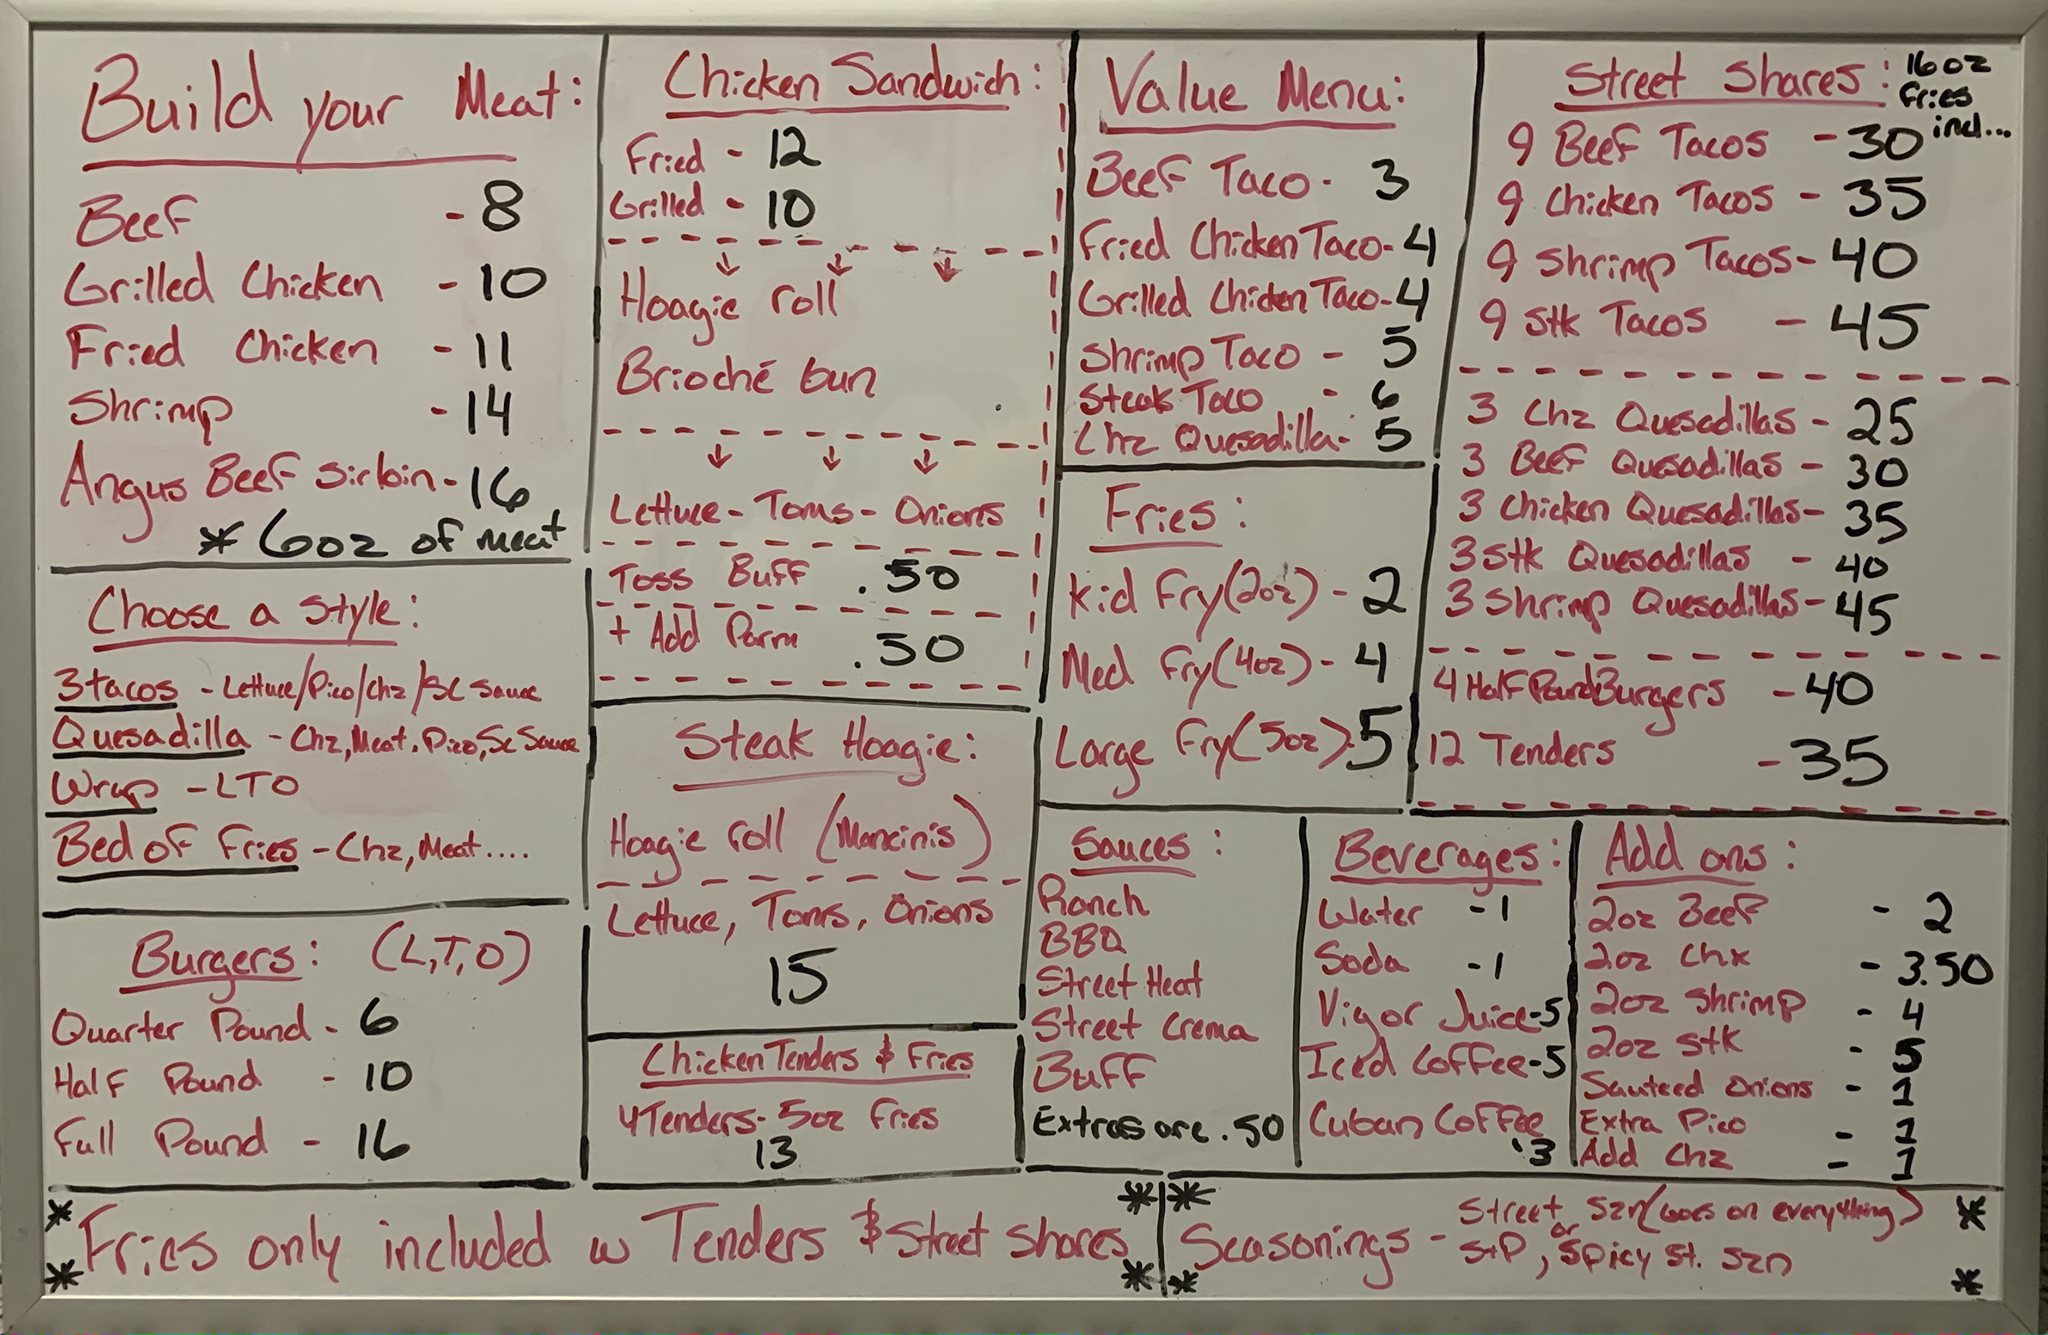 Build your Meat:
Beef - 8
Grilled Chicken - 10
Fried Chicken - 11
Shrimp - 14
Angus Beef Sirloin - 16
* 6oz of meat
Choose a Style:
3 tacos - Lettuce/Pico/Chz/SC Sauce
Quesadilla - Chz, Meat, Pico, SC Sauce
Wrap - LTO
Bed of Fries - Chz, Meat....
Burgers: (L,T,O)
Quarter Pound - 6
Half Pound - 10
Full Pound - 16
Chicken Sandwich:
Fried - 12
Grilled - 10
Hoagie roll
Brioché bun
Lettuce - Toms - Onions
Toss Buff .50
+ Add Parm .50
Steak Hoagie:
Hoagie roll (Mancinis)
Lettuce, Toms, Onions
15
Chicken Tenders & Fries
4 Tenders - 5oz Fries
13
Value Menu:
Beef Taco - 3
Fried Chicken Taco - 4
Grilled Chicken Taco - 4
Shrimp Taco - 5
Steak Taco - 6
Chz Quesadilla - 5
Fries:
Kid Fry (2oz) - 2
Med Fry (4oz) - 4
Large Fry (5oz) - 5
Street Shares: 16oz
Fries
incl...
9 Beef Tacos - 30
9 Chicken Tacos - 35
9 Shrimp Tacos - 40
9 Stk Tacos - 45
3 Chz Quesadillas - 25
3 Beef Quesadillas - 30
3 Chicken Quesadillas - 35
3 Stk Quesadillas - 40
3 Shrimp Quesadillas - 45
4 Half Pound Burgers - 40
12 Tenders - 35
Sauces:
Ranch
BBQ
Street Heat
Street Crema
Buff
Extras are .50
Beverages:
Water - 1
Soda - 1
Vigor Juice - 5
Iced Coffee - 5
Cuban Coffee
3
Add ons:
2oz Beef - 2
2oz Chx - 3.50
2oz Shrimp - 4
2oz Stk - 5
Sauteed Onions - 1
Extra Pico - 1
Add Chz - 1
* Fries only included w Tenders & Street Shares *
* *
* Seasonings - Street Szn (Goes on everything) *
or
* S+P, Spicy St. Szn *